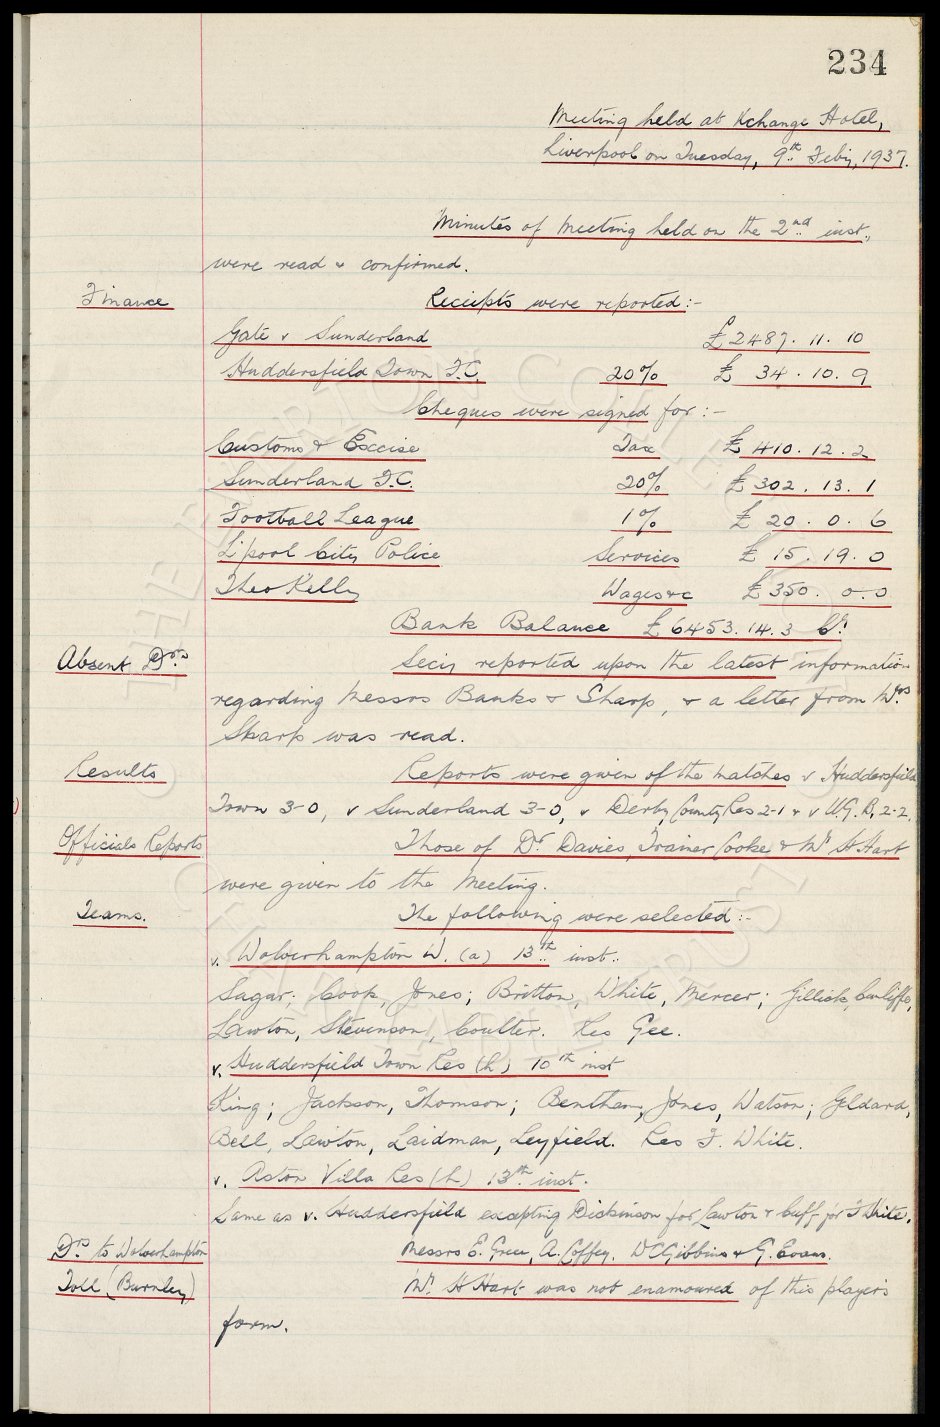 234
Meeting held at Xchange Hotel,
Liverpool on Tuesday, 9th Feby, 1937.
Minutes of Meeting held on the 2nd inst.,
were read & confirmed.
Finance Receipts were reported:-
Gate v Sunderland £2487. 11. 10
Huddersfield Town F.C. 20% £ 34. 10. 9
Cheques were signed for:-
Customs & Excise Tax £ 410. 12. 2
Sunderland F.C. 20% £ 302. 13. 1
Football League 1% £ 20. 0. 6
L'pool City Police Services £ 15. 19. 0
Theo Kelly Wages &c £ 350. 0. 0
Bank Balance £6453. 14. 3 Cr.
Absent Drs. Secy reported upon the latest information
regarding Messrs Banks & Sharp, & a letter from Mrs
Sharp was read.
Results Reports were given of the matches v Huddersfield
Town 3-0, v Sunderland 3-0, v Derby County Res 2-1 & v U.G.B. 2-2.
Officials Reports Those of Dr. Davies, Trainer Cooke & Mr H Hart
were given to the Meeting.
Teams. The following were selected:-
v. Wolverhampton W. (a) 13th inst.:
Sagar; Cook, Jones; Britton, White, Mercer; Gillick, Cunliffe,
Lawton, Stevenson, Coulter. Res Gee.
v. Huddersfield Town Res (h) 10th inst
King; Jackson, Thomson; Bentham, Jones, Watson; Geldard,
Bell, Lawton, Laidman, Leyfield. Res F. White.
v. Aston Villa Res (h) 13th inst.
Same as v. Huddersfield excepting Dickinson for Lawton & Cuff for T White.
Drs. to Wolverhampton Messrs E. Green, A. Coffey, W C Gibbins & G. Evans.
Toll (Burnley) Mr. H Hart was not enamoured of this players
form.
THE EVERTON COLLECTION
CHARITABLE TRUST